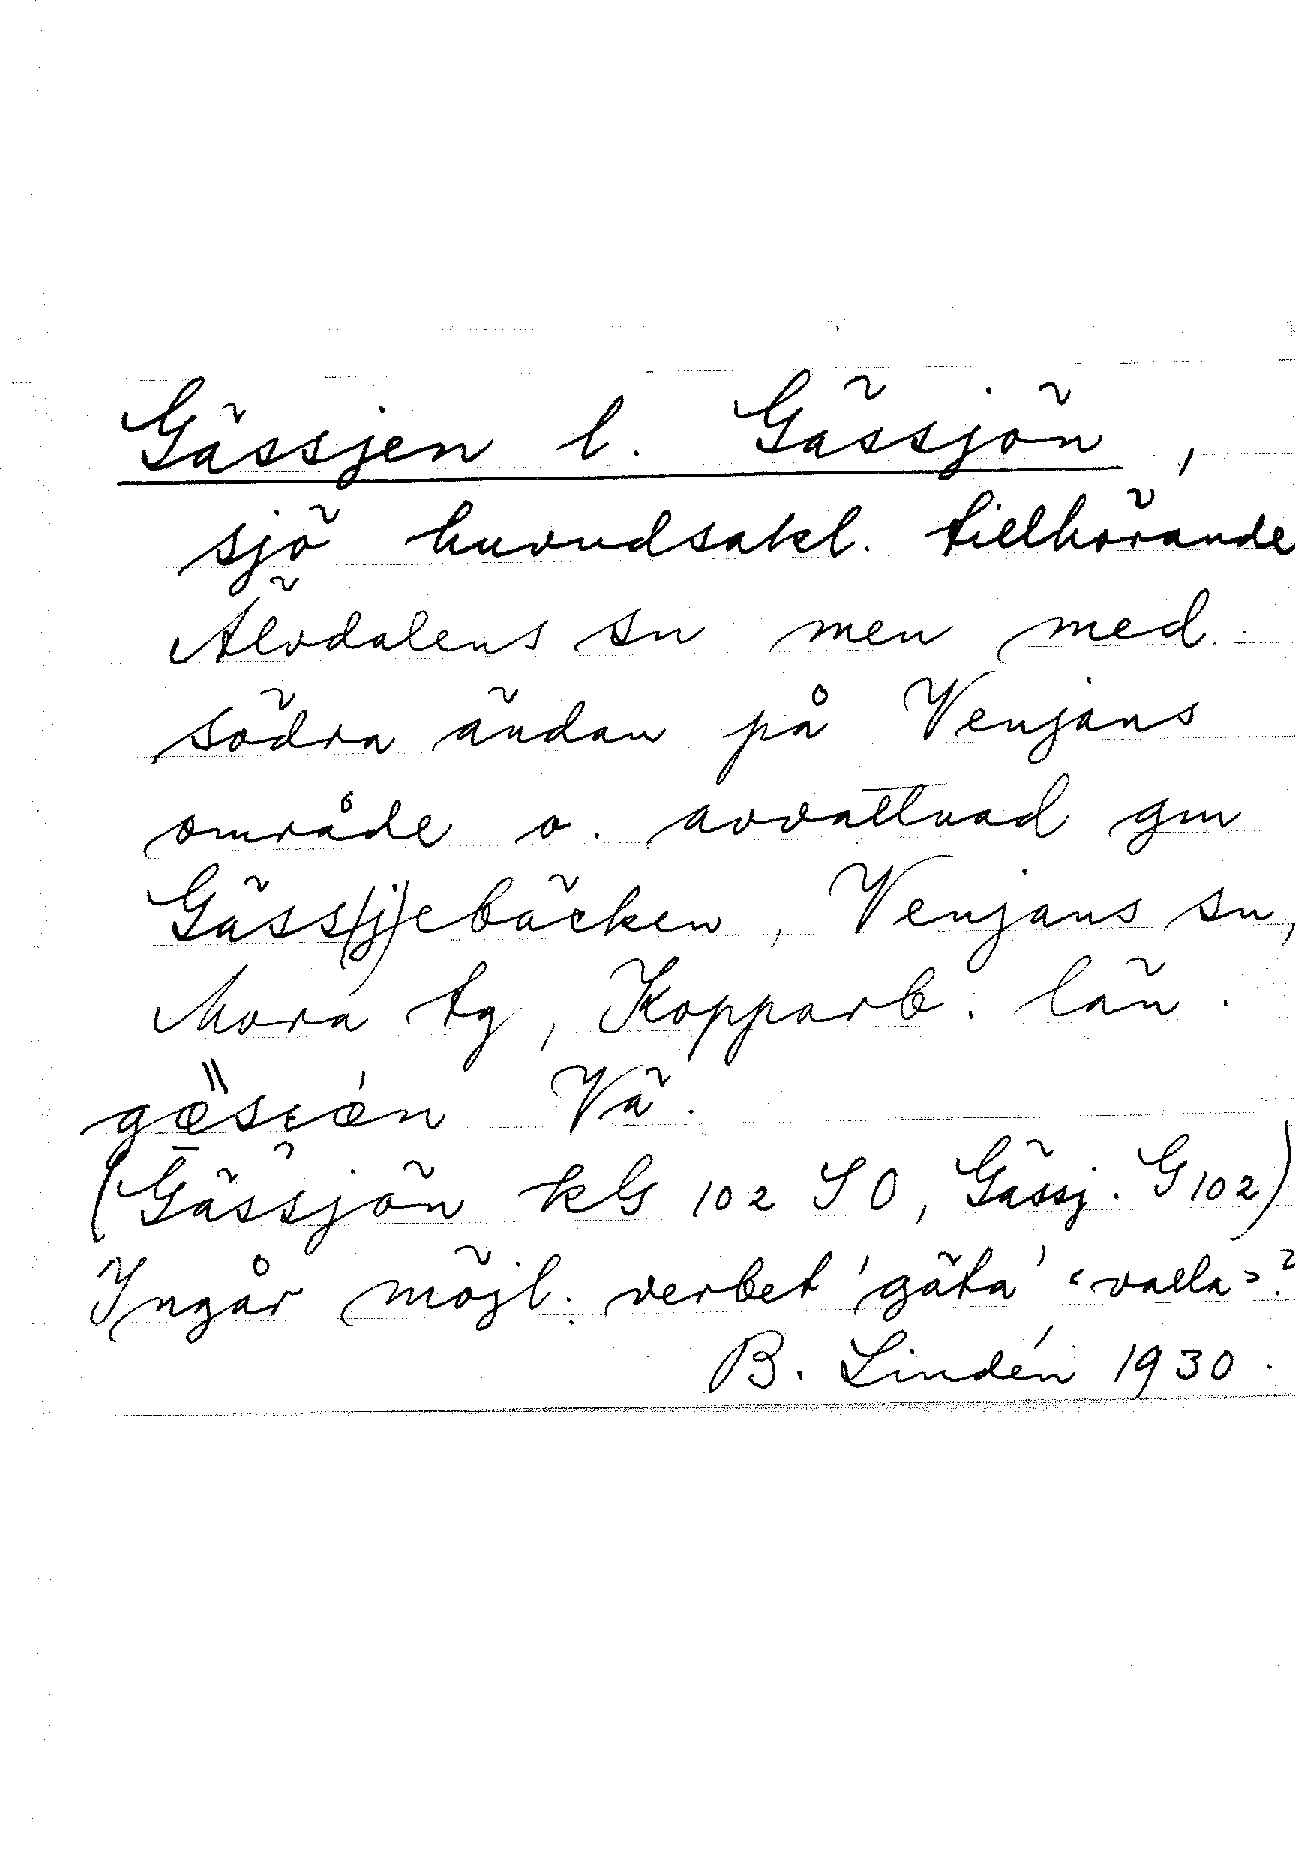 Gässjen l. Gässjön,
sjö huvudsakl. tillhörande
Älvdalens sn men med
södra ändan på Venjans
område o. avvattnad gm
Gäss(j)ebäcken, Venjans sn,
Mora tg, Kopparb. län.
Vä.
(Gässjön kG 102 SO, Gässj. G 102)
Ingår möjl. verbet 'gäta' ‹valla›?
B. Lindén 1930.